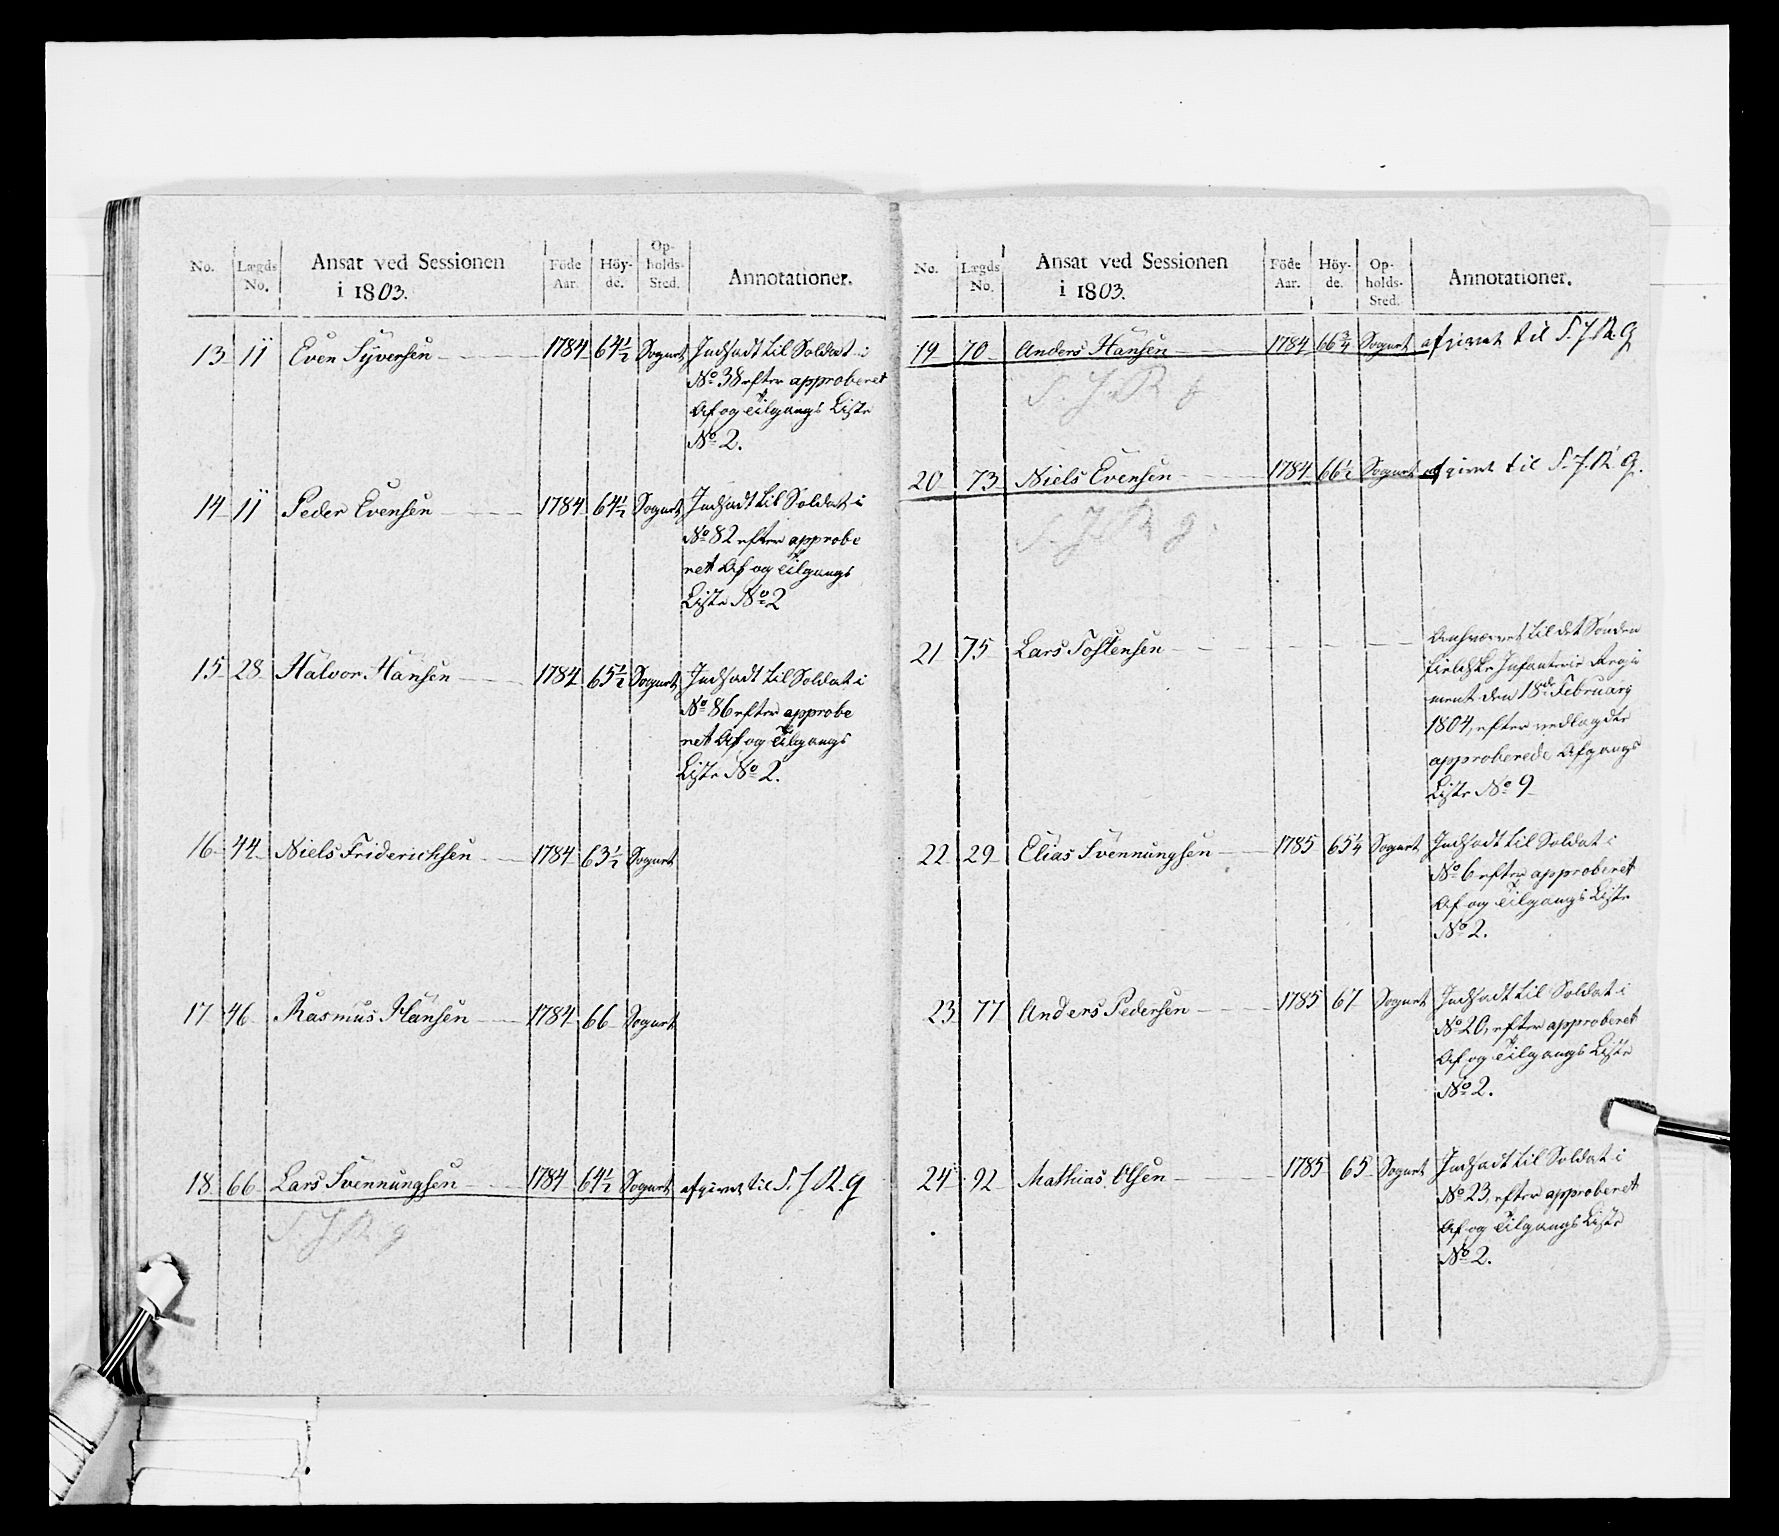 No. Lægds No. Ansat ved Sessionen i 1803. Föde Aar. Höyde. Opholds-Sted. Annotationer.
13 11 Even Syversen 1784 64½ Sognet Indsadt til Soldat i
No 38 efter approberet
Af og Tilgangs Liste
No 2.
14 11 Peder Evensen 1784 64½ Sognet Indsadt til Soldat i
No 82 efter approbe
ret Af og Tilgangs
Liste No 2
15 28 Halvor Hansen 1784 65½ Sognet Indsadt til Soldat i
No 86 efter approbe
ret Af og Tilgangs
Liste No 2.
16 44 Niels Friderichsen 1784 63½ Sognet
17 46 Rasmus Hansen 1784 66 Sognet
18 66 Lars Svennungsen 1784 64½ Sognet afgivet til S. J. R. g
S. J. R. g
No. Lægds No. Ansat ved Sessionen i 1803. Föde Aar. Höy-de. Op-holds-Sted. Annotationer.
19 70 Anders Hansen 1784 66¾ Sognet afgivet til S. J. R. g
S. J. R. g
20 73 Niels Evensen 1784 66½ Sognet afgivet til S. J. R. g.
S. J. R. g.
21 75 Lars Tostensen Anhvervet til det Sönden
fieldske Infanterie Regi
ment den 18de Februarij
1804, efter vedlagde
approberede Afgangs
Liste No 9
22 29 Elias Svennungsen 1785 65¼ Sognet Indsadt til Soldat i
No 6 efter approberet
Af og Tilgangs Liste
No 2.
23 77 Anders Pedersen 1785 67 Sognet Indsadt til Soldat i
No 20, efter approberet
Af og Tilgangs Liste
No 2.
24 92 Mathias Olsen 1785 65 Sognet Indsadt til Soldat i
No 23, efter approberet
Af og Tilgangs Liste
No 2.